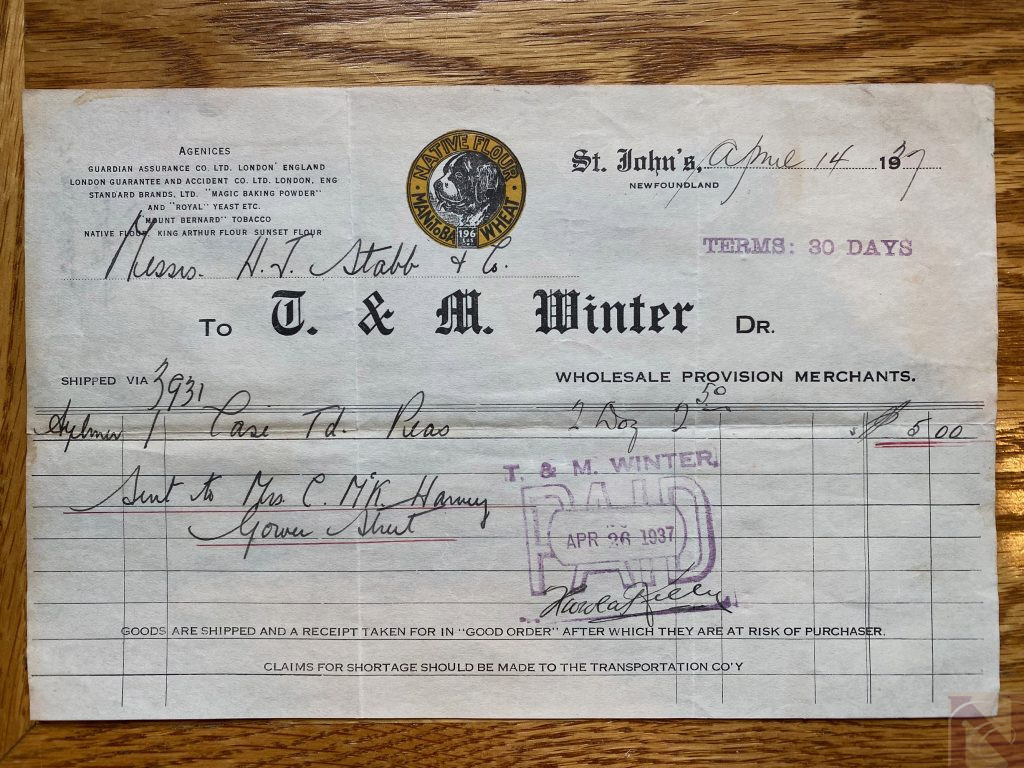 AGENICES
GUARDIAN ASSURANCE CO. LTD. LONDON' ENGLAND
LONDON GUARANTEE AND ACCIDENT CO. LTD. LONDON, ENG
STANDARD BRANDS, LTD. "MAGIC BAKING POWDER"
AND "ROYAL" YEAST ETC.
"MOUNT BERNARD" TOBACCO
NATIVE FLOUR, KING ARTHUR FLOUR SUNSET FLOUR
NATIVE FLOUR
MANITOBA WHEAT
196
LBS
St. John's, April 14 1937
NEWFOUNDLAND
TERMS: 30 DAYS
Messrs. H. J. Stabb & Co.
To T. & M. Winter DR.
SHIPPED VIA 3931
WHOLESALE PROVISION MERCHANTS.
Aylmer 1 Case Td. Peas 2 Doz 2 50 $ 5 00
Sent to Mrs C. McK Harvey
Gower Street
T. & M. WINTER.
PAID
APR 26 1937
GOODS ARE SHIPPED AND A RECEIPT TAKEN FOR IN "GOOD ORDER" AFTER WHICH THEY ARE AT RISK OF PURCHASER.
CLAIMS FOR SHORTAGE SHOULD BE MADE TO THE TRANSPORTATION CO'Y